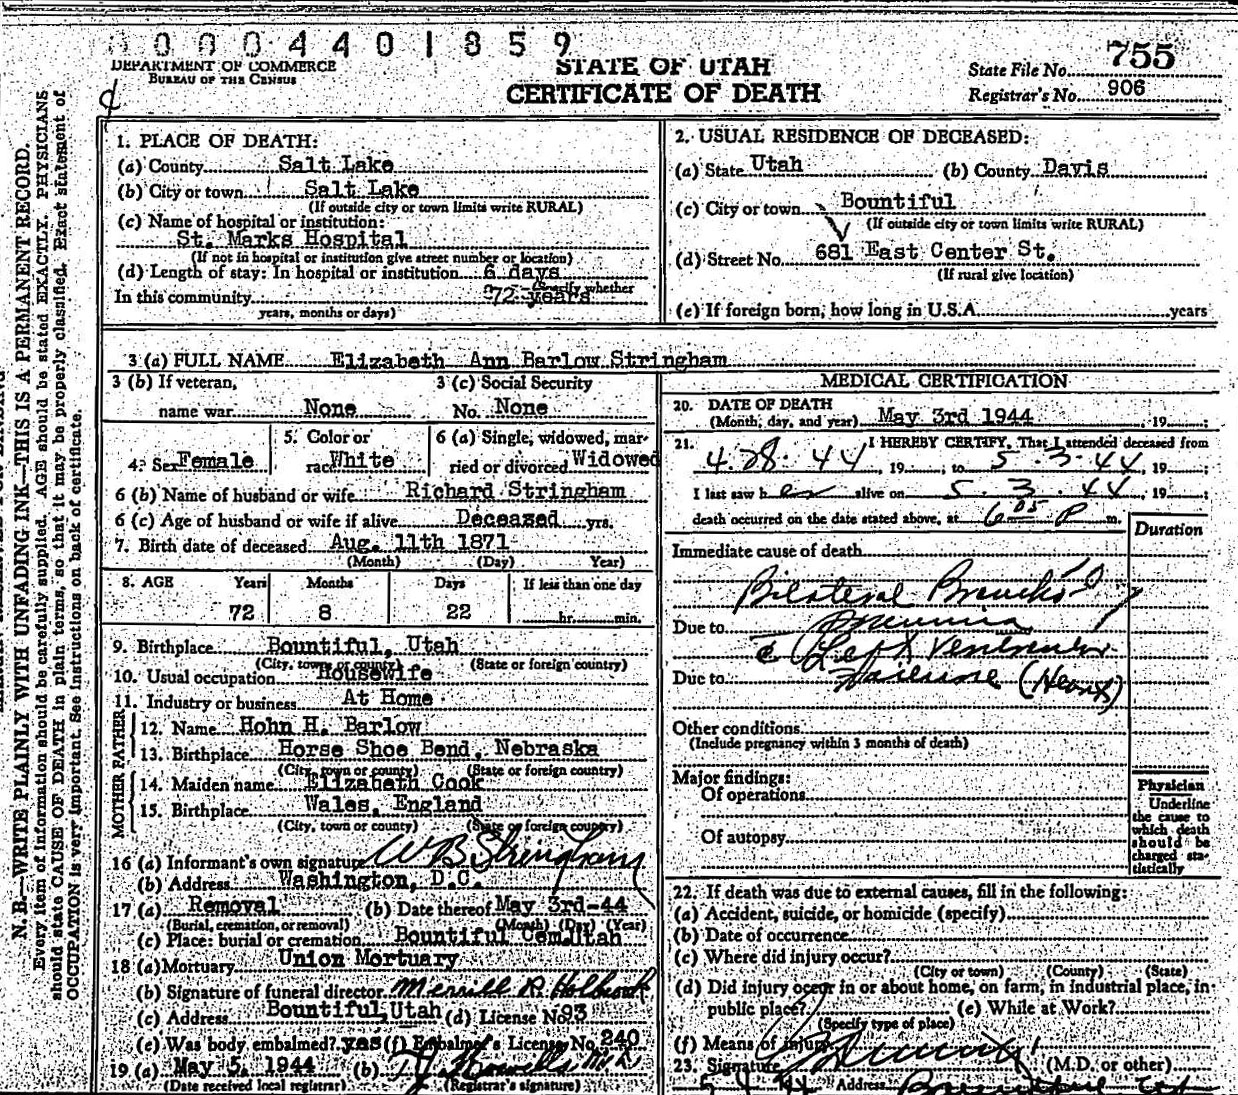 00004401859
DEPARTMENT OF COMMERCE
BUREAU OF THE CENSUS
STATE OF UTAH
CERTIFICATE OF DEATH
State File No. 755
Registrar's No. 906
N. B.—WRITE PLAINLY WITH UNFADING INK—THIS IS A PERMANENT RECORD.
Every item of information should be carefully supplied. AGE should be stated EXACTLY. PHYSICIANS
should state CAUSE OF DEATH in plain terms, so that it may be properly classified. Exact statement of
OCCUPATION is very important. See instructions on back of certificate.
1. PLACE OF DEATH:
(a) County Salt Lake
(b) City or town Salt Lake
(If outside city or town limits write RURAL)
(c) Name of hospital or institution:
St. Marks Hospital
(If not in hospital or institution give street number or location)
(d) Length of stay: In hospital or institution 6 days
(Specify whether
In this community 72 years
years, months or days)
2. USUAL RESIDENCE OF DECEASED:
(a) State Utah (b) County Davis
(c) City or town Bountiful
(If outside city or town limits write RURAL)
(d) Street No. 681 East Center St.
(If rural give location)
(e) If foreign born, how long in U.S.A. years
3 (a) FULL NAME Elizabeth Ann Barlow Stringham
3 (b) If veteran, 3 (c) Social Security
name war None No. None
4. Sex Female 5. Color or race White 6 (a) Single, widowed, married or divorced Widowed
6 (b) Name of husband or wife Richard Stringham
6 (c) Age of husband or wife if alive Deceased yrs.
7. Birth date of deceased Aug. 11th 1871
(Month) (Day) Year)
8. AGE Years Months Days If less than one day
72 8 22 hr. min.
9. Birthplace Bountiful, Utah
(City, town or county) (State or foreign country)
10. Usual occupation Housewife
11. Industry or business At Home
MOTHER FATHER
12. Name Hohn H. Barlow
13. Birthplace Horse Shoe Bend, Nebraska
(City, town or county) (State or foreign country)
14. Maiden name Elizabeth Cook
15. Birthplace Wales, England
(City, town or county) (State or foreign country)
16 (a) Informant's own signature W B Stringham
(b) Address Washington, D.C.
17 (a) Removal (b) Date thereof May 3rd-44
(Burial, cremation, or removal) (Month) (Day) (Year)
(c) Place: burial or cremation Bountiful Cem. Utah
18 (a) Mortuary Union Mortuary
(b) Signature of funeral director Merrill R Holbrook
(c) Address Bountiful, Utah (d) License No. 93
(e) Was body embalmed? yes (f) Embalmer's License No. 240
19 (a) May 5, 1944 (b)
(Date received local registrar) (Registrar's signature)
MEDICAL CERTIFICATION
20. DATE OF DEATH
(Month, day, and year) May 3rd 1944, 19 ;
21. I HEREBY CERTIFY, That I attended deceased from
4.28.44, 19 ; to 5.3.44, 19 ;
I last saw her alive on 5.3.44, 19 ;
death occurred on the date stated above, at 6 05 P m.
Duration
Immediate cause of death
Bilateral Bronchial
Due to Pneumonia
c Left Ventricular
Due to Failure (Heart)
Other conditions
(Include pregnancy within 3 months of death)
Major findings:
Of operations
Of autopsy
Physician
Underline
the cause to
which death
should be
charged sta-
tistically
22. If death was due to external causes, fill in the following:
(a) Accident, suicide, or homicide (specify)
(b) Date of occurrence
(c) Where did injury occur?
(City or town) (County) (State)
(d) Did injury occur in or about home, on farm, in industrial place, in
public place? (e) While at Work?
(Specify type of place)
(f) Means of injury
23. Signature (M.D. or other)
5 4 44 Address Bountiful Ut